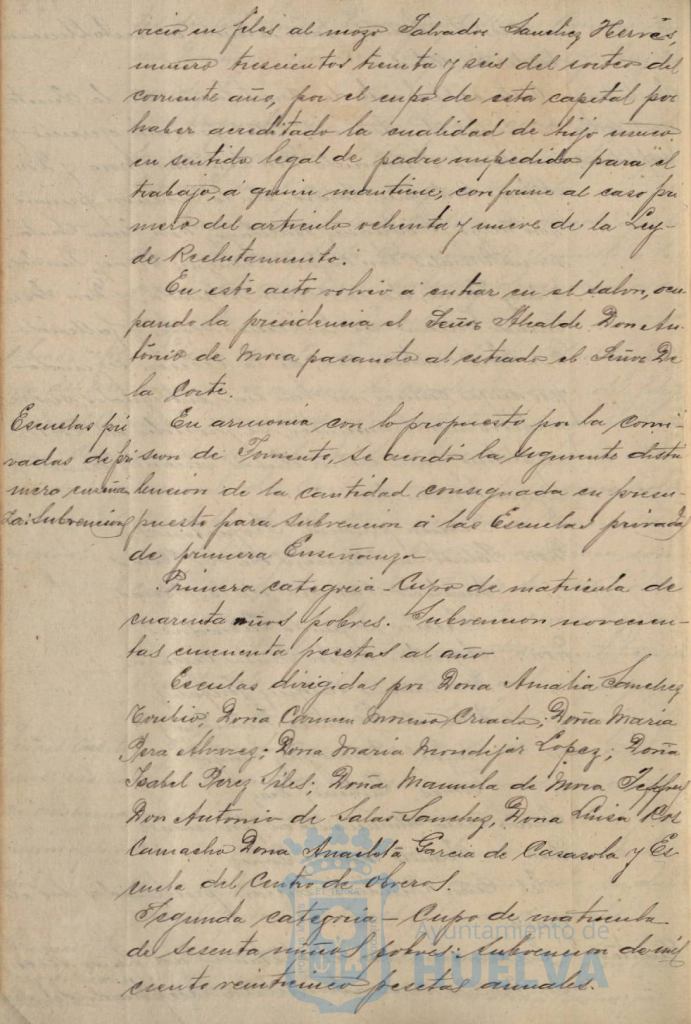 vicio en filas al mozo Salvador Sanchez Hervás,
numero trescientos treinta y seis del sorteo del
corriente año, por el cupo de esta capital por
haber acreditado la cualidad de hijo unico
en sentido legal de padre impedido para el
trabajo, á quien mantiene, conforme al caso pri
mero del articulo ochenta y nueve de la Ley
de Reclutamiento.
En este acto volvio á entrar en el salon, ocu
pando la presidencia el Señor Alcalde Don An
tonio de Mora pasando al estrado el Señor De
la Corte.
Escuelas pri
vadas de pri
mera enseñan
za: Subvencion
En armonia con lo propuesto por la Comi-
sion de Fomento, se acordó la siguiente distri
bucion de la cantidad consignada en presu
puesto para subvencion á las Escuelas privadas
de primera Enseñanza
Primera categoria - Cupo de matricula de
cuarenta niños pobres. Subvencion novecien-
tas cincuenta pesetas al año
Escuelas dirigidas por Doña Amalia Sanchez
Toribio; Doña Carmen Moreno Criado; Doña Maria
Pera Alvarez; Doña Maria Mondijar Lopez; Doña
Isabel Perez Siles; Doña Manuela de Mora
Don Antonio de Salas Sanchez, Doña Luisa Cos
Camacho Doña Anacleta Garcia de Casasola y Es-
cuela del Centro de Obreros.
Segunda categoria - Cupo de matricula
de sesenta niños pobres: subvencion de mil
ciento veinticinco pesetas anuales.
Ayuntamiento de
HUELVA